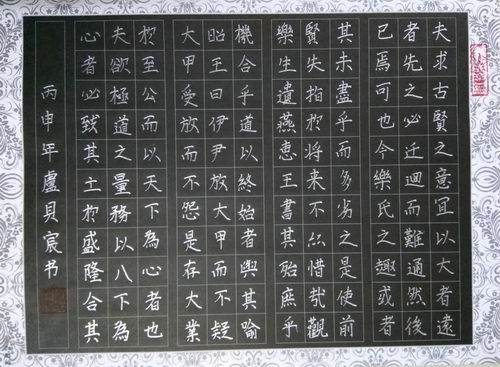 夫求古賢之意宜以大者遠
者先之必迂迴而難通然後
已焉可也今樂氏之趣或者
其未盡乎而多劣之是使前
賢失指於将来不亦惜哉觀
樂生遺燕惠王書其殆庶乎
機合乎道以終始者與其喻
昭王曰伊尹放大甲而不疑
大甲受放而不怨是存大業
於至公而以天下為心者也
夫欲極道之量務以八下為
心者必致其主於盛隆合其
丙申年盧貝宸书